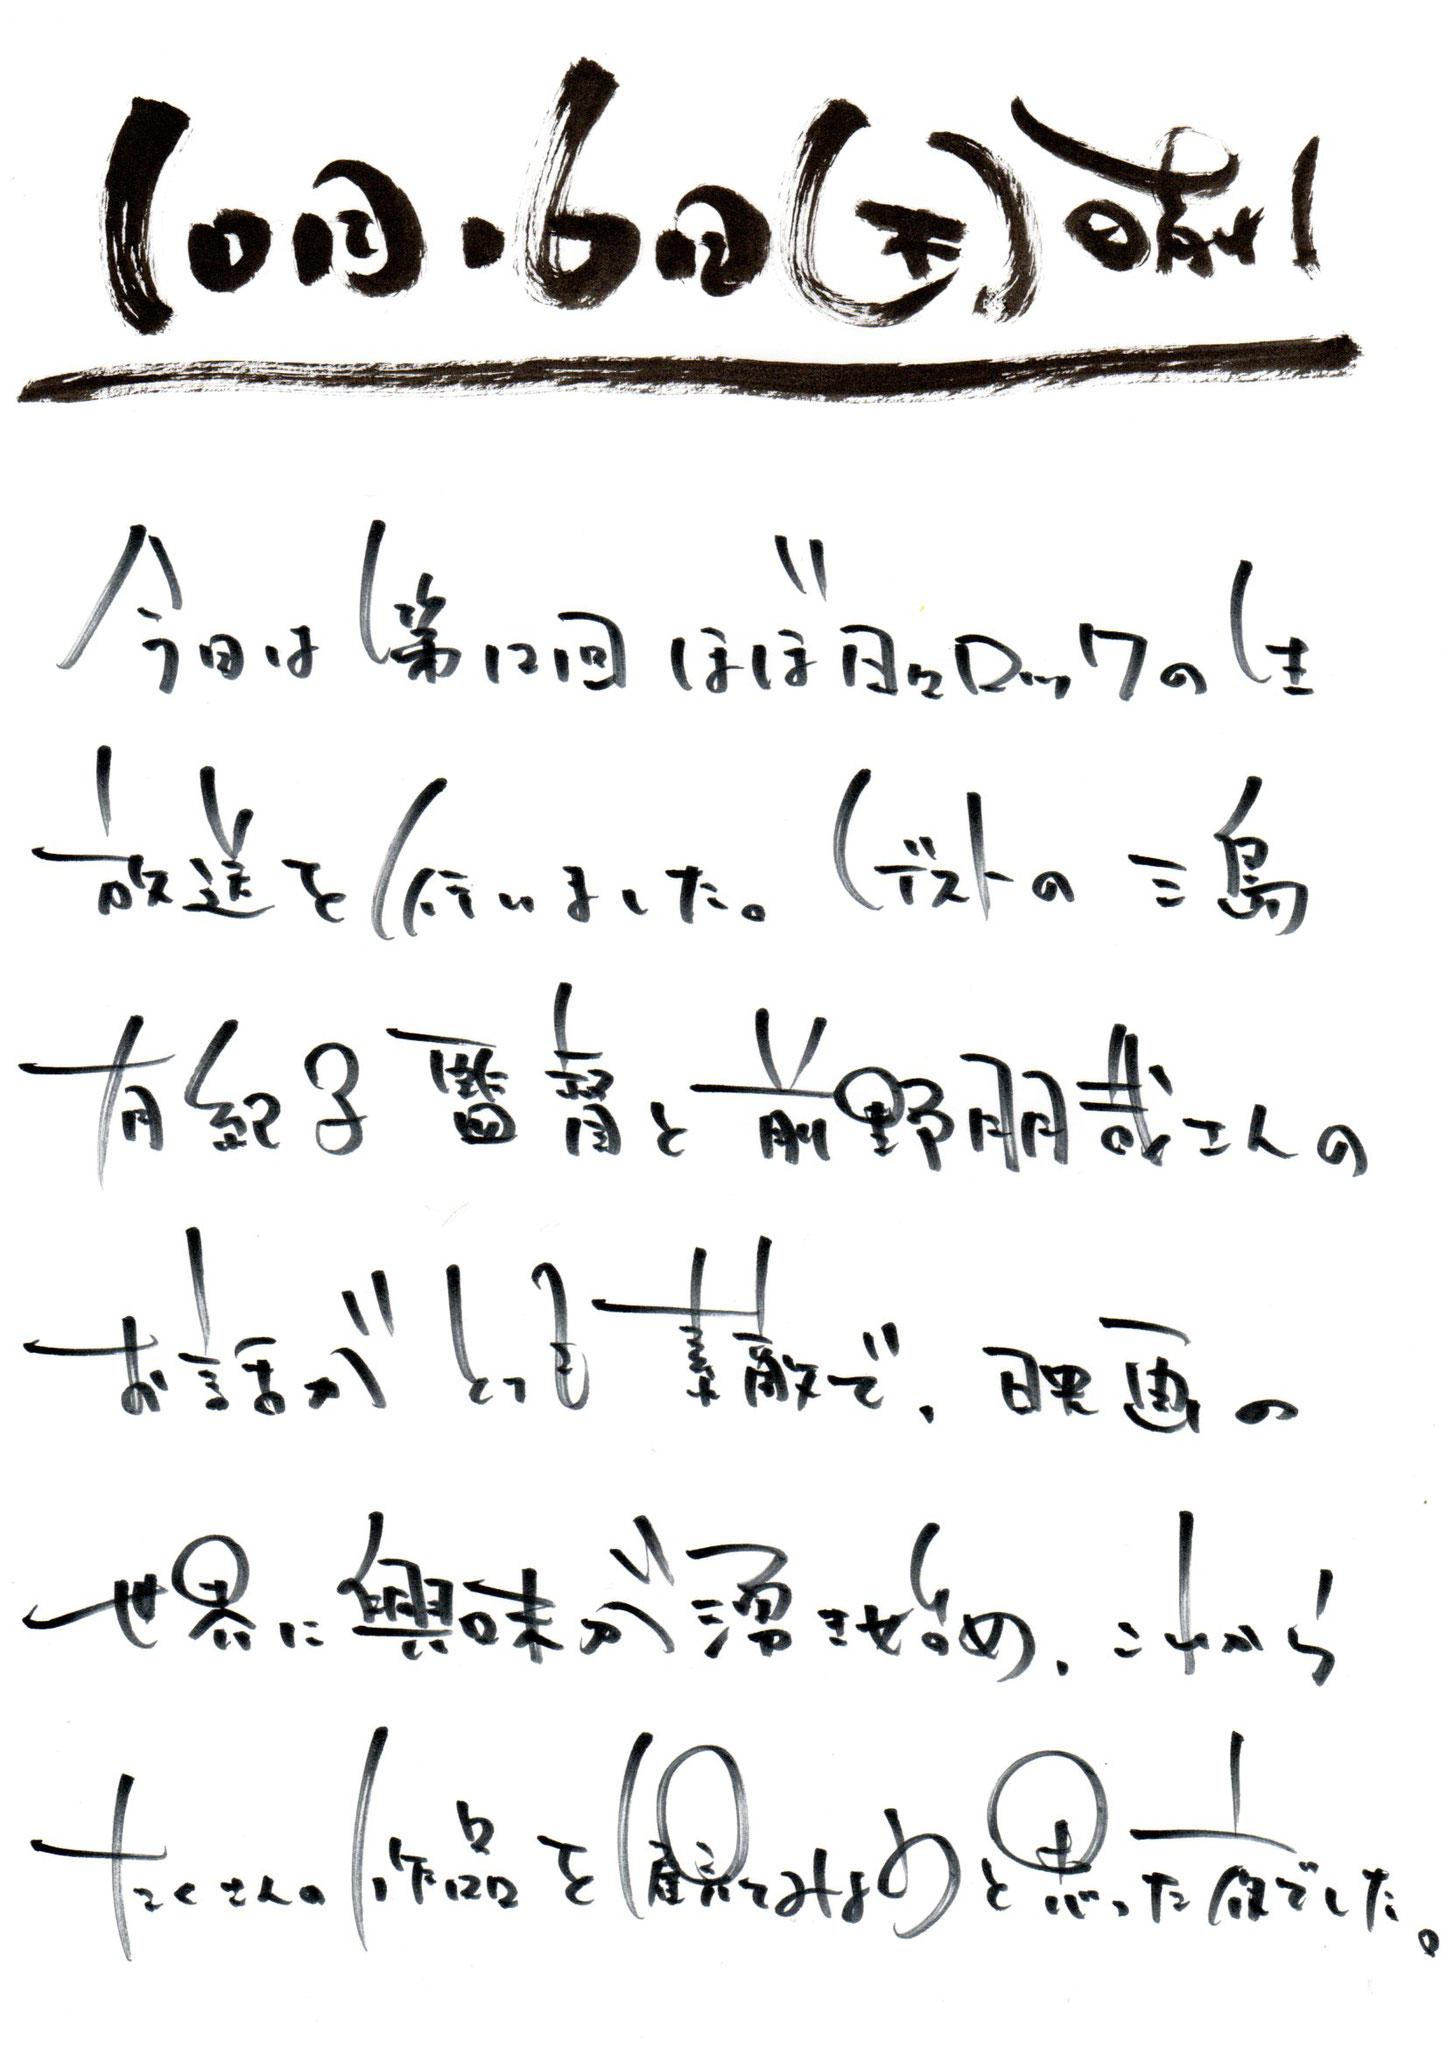 10月16日(木)晴れ
今日は第12回ほぼ月々ロックの生
放送を行いました。ゲストの三島
有紀子監督と前野朋哉さんの
お話がとても素敵で、映画の
世界に興味が湧き始め、これから
たくさんの作品を観てみようと思った夜でした。